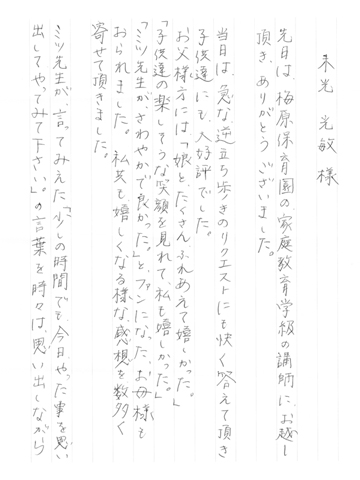 末光 光敏 様
先日は、梅原保育園の家庭教育学級の講師に、お越し
頂き、ありがとうございました。
当日は、急な逆立ち歩きのリクエストにも快く答えて頂き
子供達にも大好評でした。
お父様方には「娘と、たくさんふれあえて嬉しかった。」
「子供達の楽しそうな笑顔を見れて私も嬉しかった。」
「ミツ先生がさわやかで良かった。」と、ファンになった、お母様も
おられました。私共も嬉しくなる様な感想を数多く
寄せて頂きました。
ミツ先生が言ってみえた「少しの時間でも、今日やった事を思い
出してやってみて下さい。」の言葉を時々は、思い出しながら